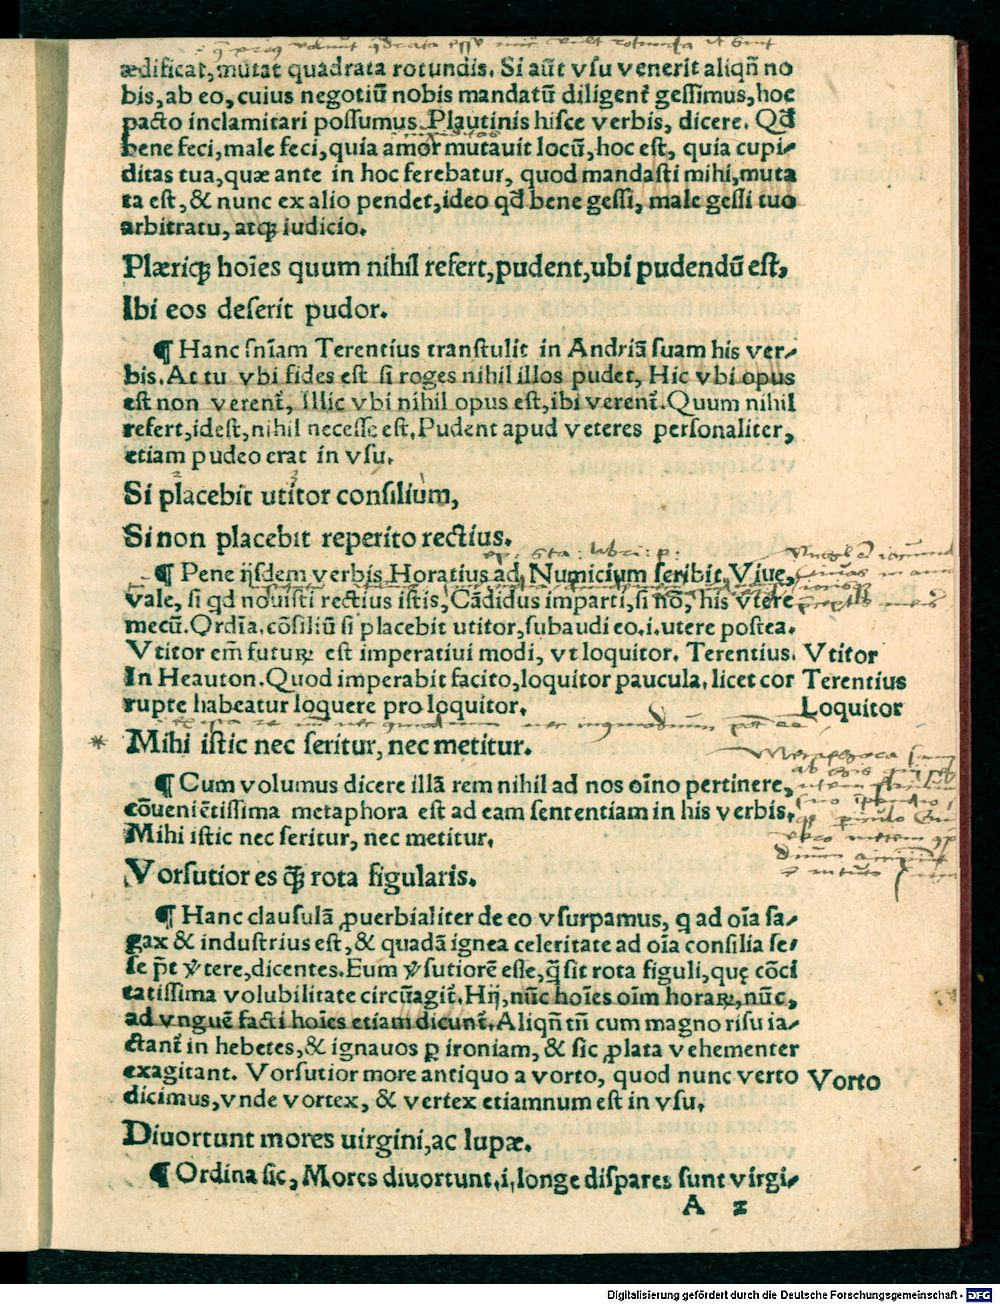 ædificat, mutat quadrata rotundis. Si aūt vsu venerit aliqñ no
bis, ab eo, cuius negotiū nobis mandatū diligenť gessimus, hoc
pacto inclamitari possumus Plautinis hisce verbis, dicere. Qđ
bene feci, male feci, quia amor mutauit locū, hoc est, quia cupi-
ditas tua, quæ ante in hoc ferebatur, quod mandasti mihi, muta
ta est, & nunc ex alio pendet, ideo qđ bene gessi, male gessi tuo
arbitratu, atqꝫ iudicio.
Plæriqꝫ hoīes quum nihil refert, pudent, ubi pudendū est,
Ibi eos deserit pudor.
¶ Hanc sñiam Terentius transtulit in Andriā suam his ver-
bis. At tu vbi fides est si roges nihil illos pudet, Hic vbi opus
est non verenť, Illic vbi nihil opus est, ibi verenť. Quum nihil
refert, idest, nihil necesse est. Pudent apud veteres personaliter,
etiam pudeo erat in vsu.
Si placebit utitor consilium,
Sinon placebit reperito rectius.
ep: 6ta: libri: p:
¶ Pene ijsdem verbis Horatius ad Numicium scribit, Viue,
vale, si qd nouisti rectius istis, Cādidus imparti, si nō, his vtere
mecū. Ordīa. cōsiliū si placebit utitor, subaudi eo. i. utere postea.
Vtitor em̄ futuꝝ est imperatiui modi, vt loquitor. Terentius. Vtitor
In Heauton. Quod imperabit facito, loquitor paucula. licet cor Terentius
rupte habeatur loquere pro loquitor. Loquitor
* Mihi istic nec seritur, nec metitur.
¶ Cum volumus dicere illā rem nihil ad nos oīno pertinere,
cōueniētissima metaphora est ad eam sententiam in his verbis.
Mihi istic nec seritur, nec metitur.
Vorsutior es q̄ꝫ rota figularis.
¶ Hanc clausulā ꝓuerbialiter de eo vsurpamus, q ad oīa sa-
gax & industrius est, & quadā ignea celeritate ad oīa consilia se-
se p̄t v̓tere, dicentes. Eum v̓sutiorē esse, q̄ sit rota figuli, quę cōci
tatissima volubilitate circūagiť. Hij, nūc hoīes oīm horaꝝ, nūc,
ad vnguē facti hoīes etiam dicunť. Aliqñ tñ cum magno risu ia-
ctanť in hebetes, & ignauos ꝑ ironiam, & sic ꝓlata vehementer
exagitant. Vorsutior more antiquo a vorto, quod nunc verto Vorto
dicimus, vnde vortex, & vertex etiamnum est in vsu.
Diuortunt mores uirgini, ac lupæ.
¶ Ordina sic, Mores diuortunt. i. longe dispares sunt virgi-
A 2
Digitalisierung gefördert durch die Deutsche Forschungsgemeinschaft - DFG